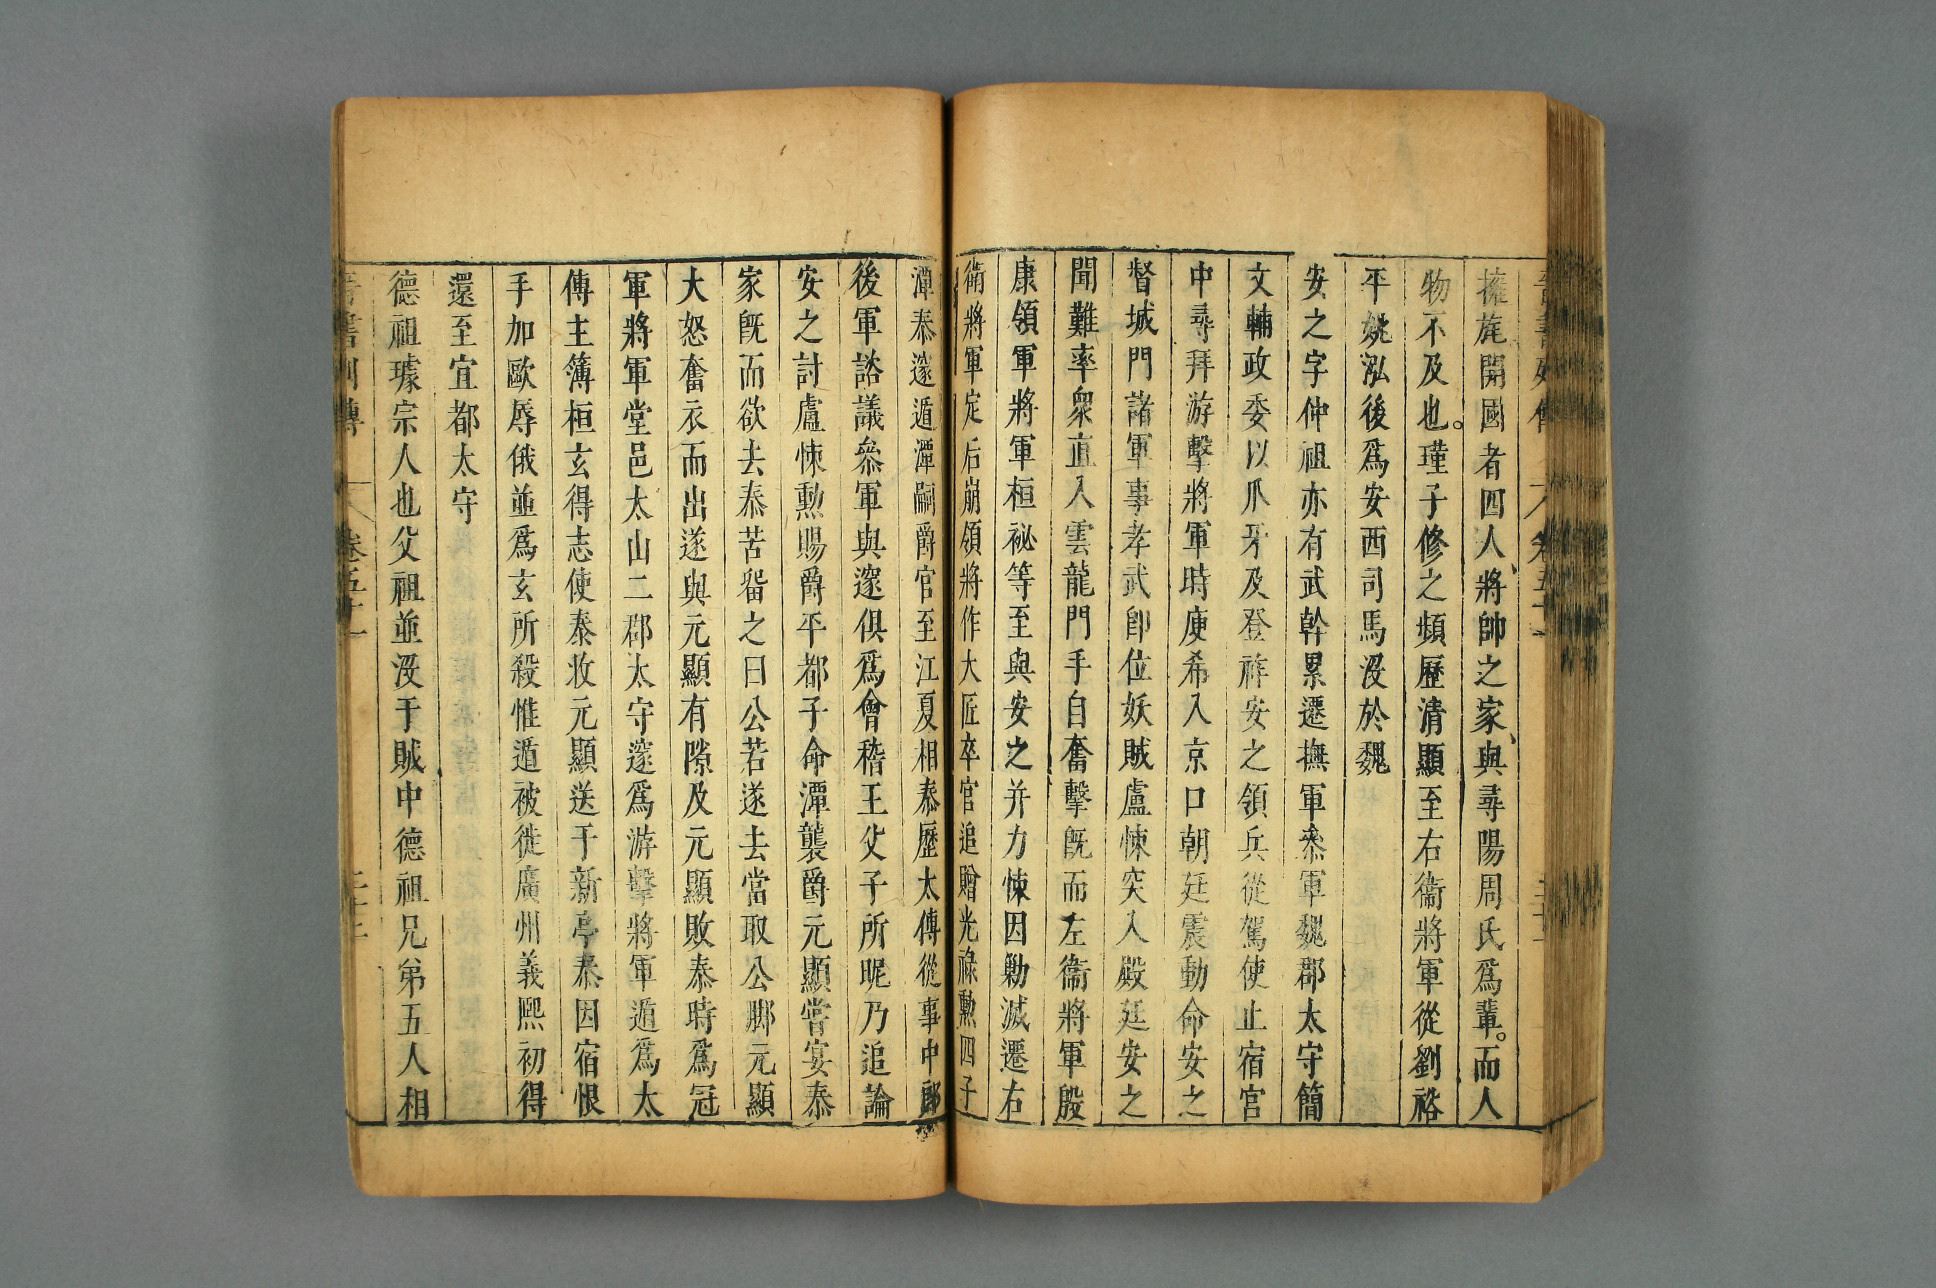 擁旄開國者四人將帥之家與尋陽周氏爲輩。而人
物不及也。瑾子修之頻歷清顯至右衞將軍從劉裕
平姚泓後爲安西司馬没於魏
安之字仲祖亦有武幹累遷撫軍叅軍魏郡太守簡
文輔政委以爪牙及登祚安之領兵從駕使止宿宮
中尋拜游擊將軍時庾希入京口朝廷震動命安之
督城門諸軍事孝武卽位妖賊盧悚突入殿廷安之
聞難率衆直入雲龍門手自奮擊旣而左衞將軍殷
康領軍將軍桓祕等至與安之并力悚因勦滅遷右
衞將軍定后崩領將作大匠卒官追贈光祿勲四子
潭泰邃遁潭嗣爵官至江夏相泰歷太傅從事中郎
後軍諮議叅軍與邃俱爲會稽王父子所昵乃追論
安之討盧悚勲賜爵平都子命潭襲爵元顯嘗宴泰
家旣而欲去泰苦畱之曰公若遂去當取公脚元顯
大怒奮衣而出遂與元顯有隙及元顯敗泰時爲冠
軍將軍堂邑太山二郡太守邃爲游擊將軍遁爲太
傅主簿桓玄得志使泰收元顯送于新亭泰因宿恨
手加毆辱俄並爲玄所殺惟遁被徙廣州義熙初得
還至宜都太守
德祖璩宗人也父祖並没于賊中德祖兄弟五人相
晉書列傳 卷五十一